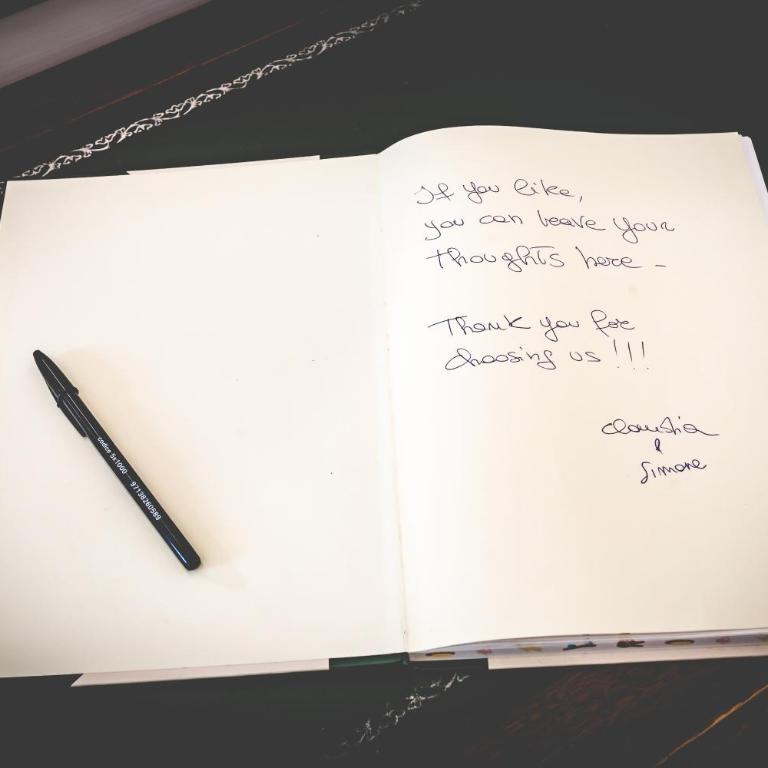 If you like,
you can leave your
thoughts here -
Thank you for
choosing us !!!
Claudia
&
Simone
codice 5x1000 — 97138260589